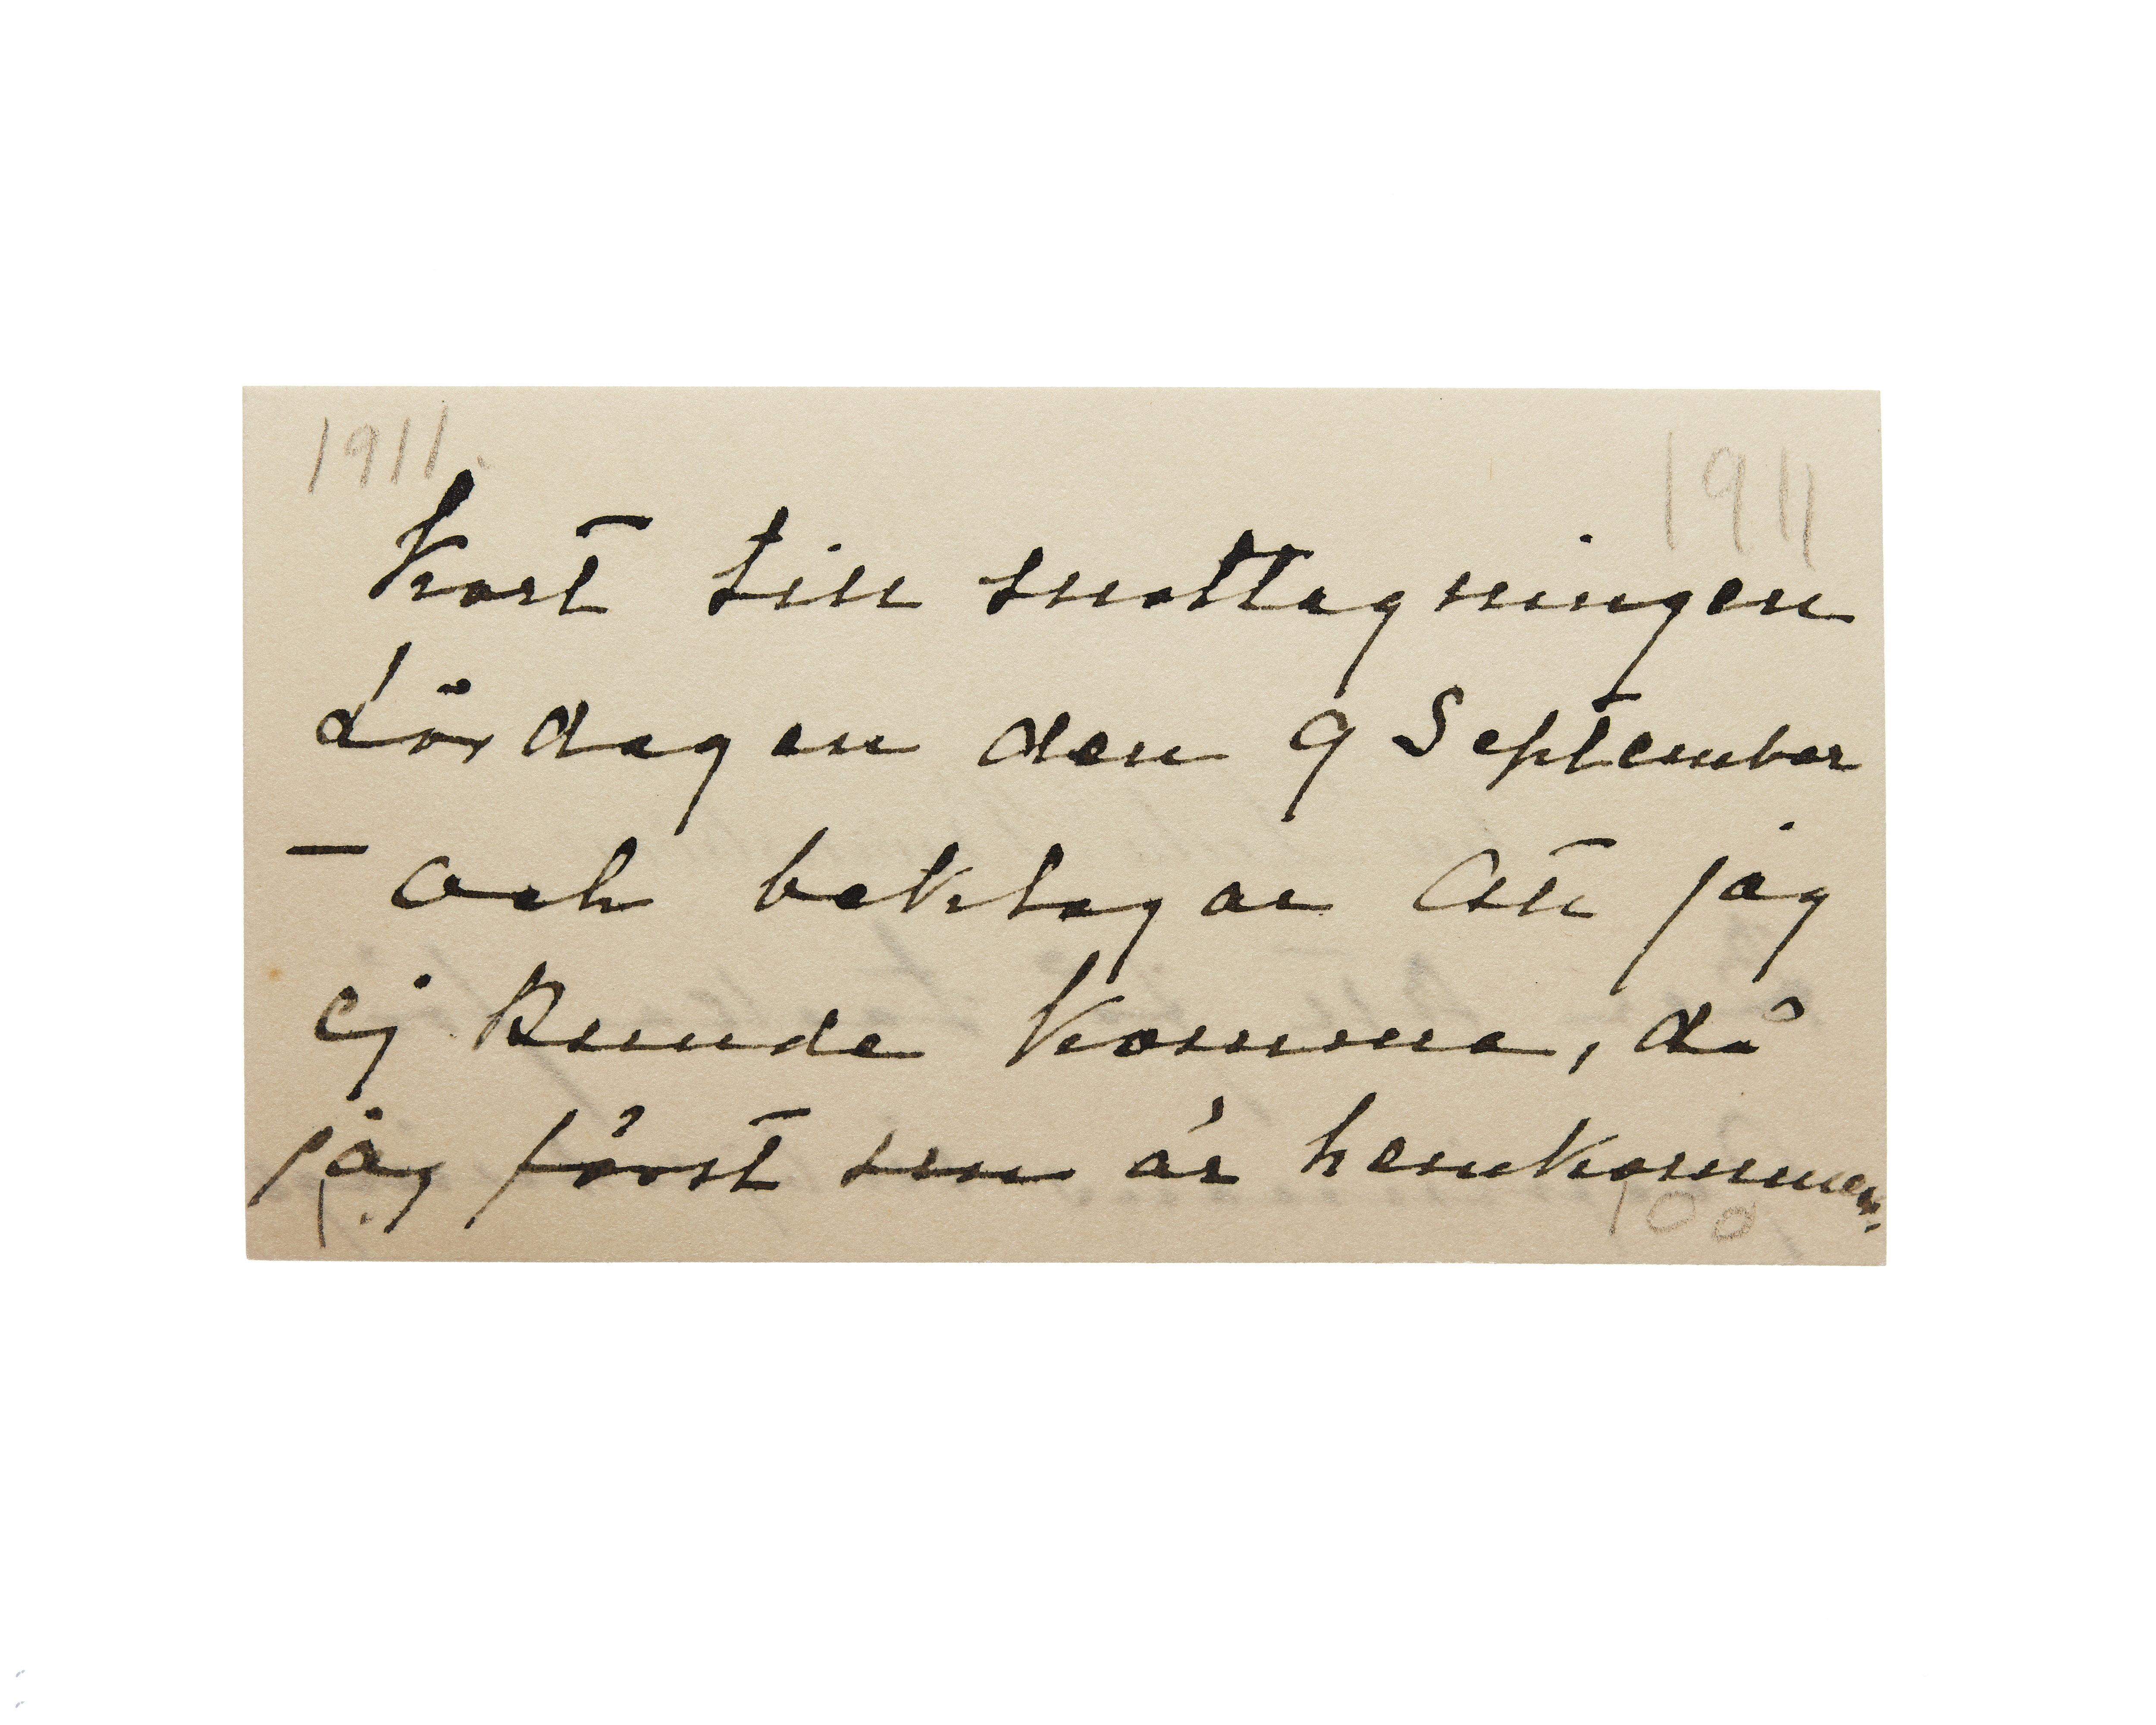 1911. 1911
kort till mottagningen
Lördagen den 9 September
— och beklagar att jag
ej kunde komma, då
jag först nu är hemkommen.
1. 100